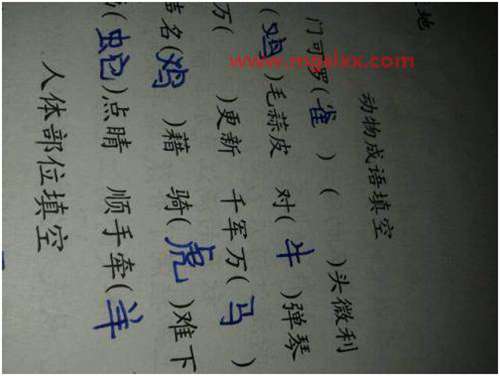 地
动物成语填空
门可罗(雀) ( )头微利
(鸡)毛蒜皮 对(牛)弹琴
万( )更新 千军万(马)
名(鸡)籍 骑(虎)难下
(蛇)点睛 顺手牵(羊)
人体部位填空
www.mgalxx.com